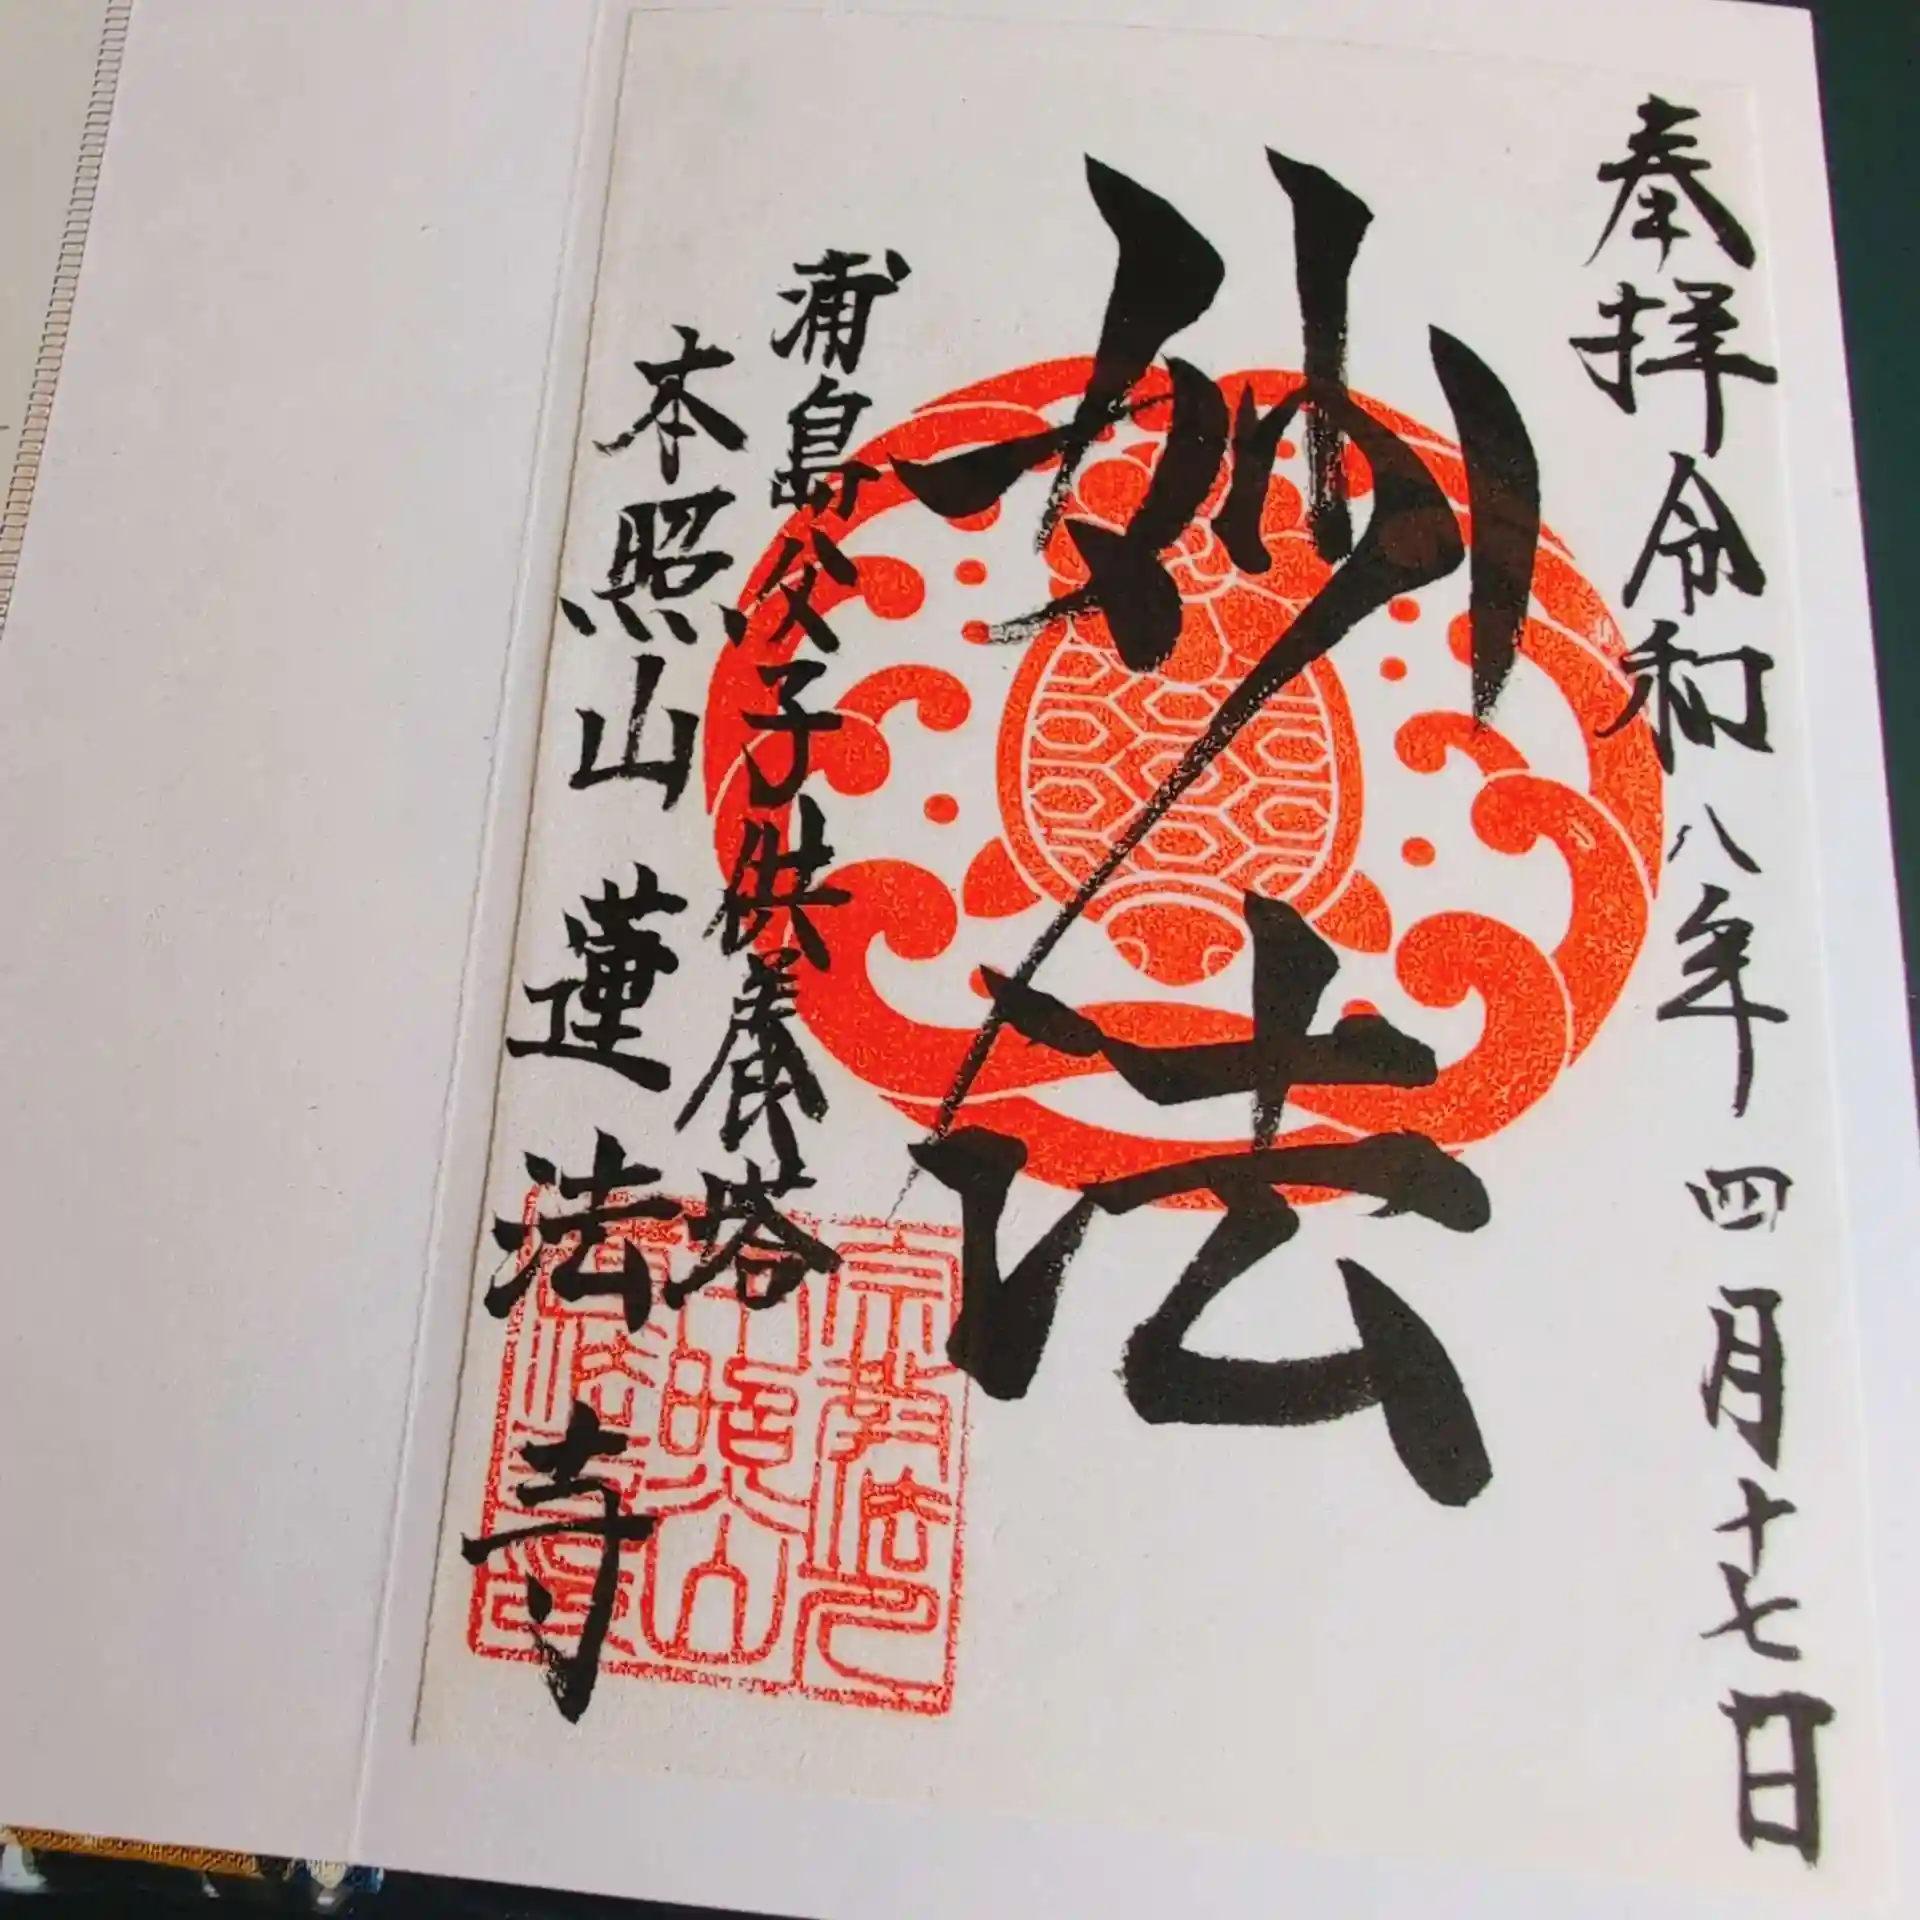 奉拝 令和八年四月十七日
妙法
浦島父子供養塔
本照山 蓮法寺